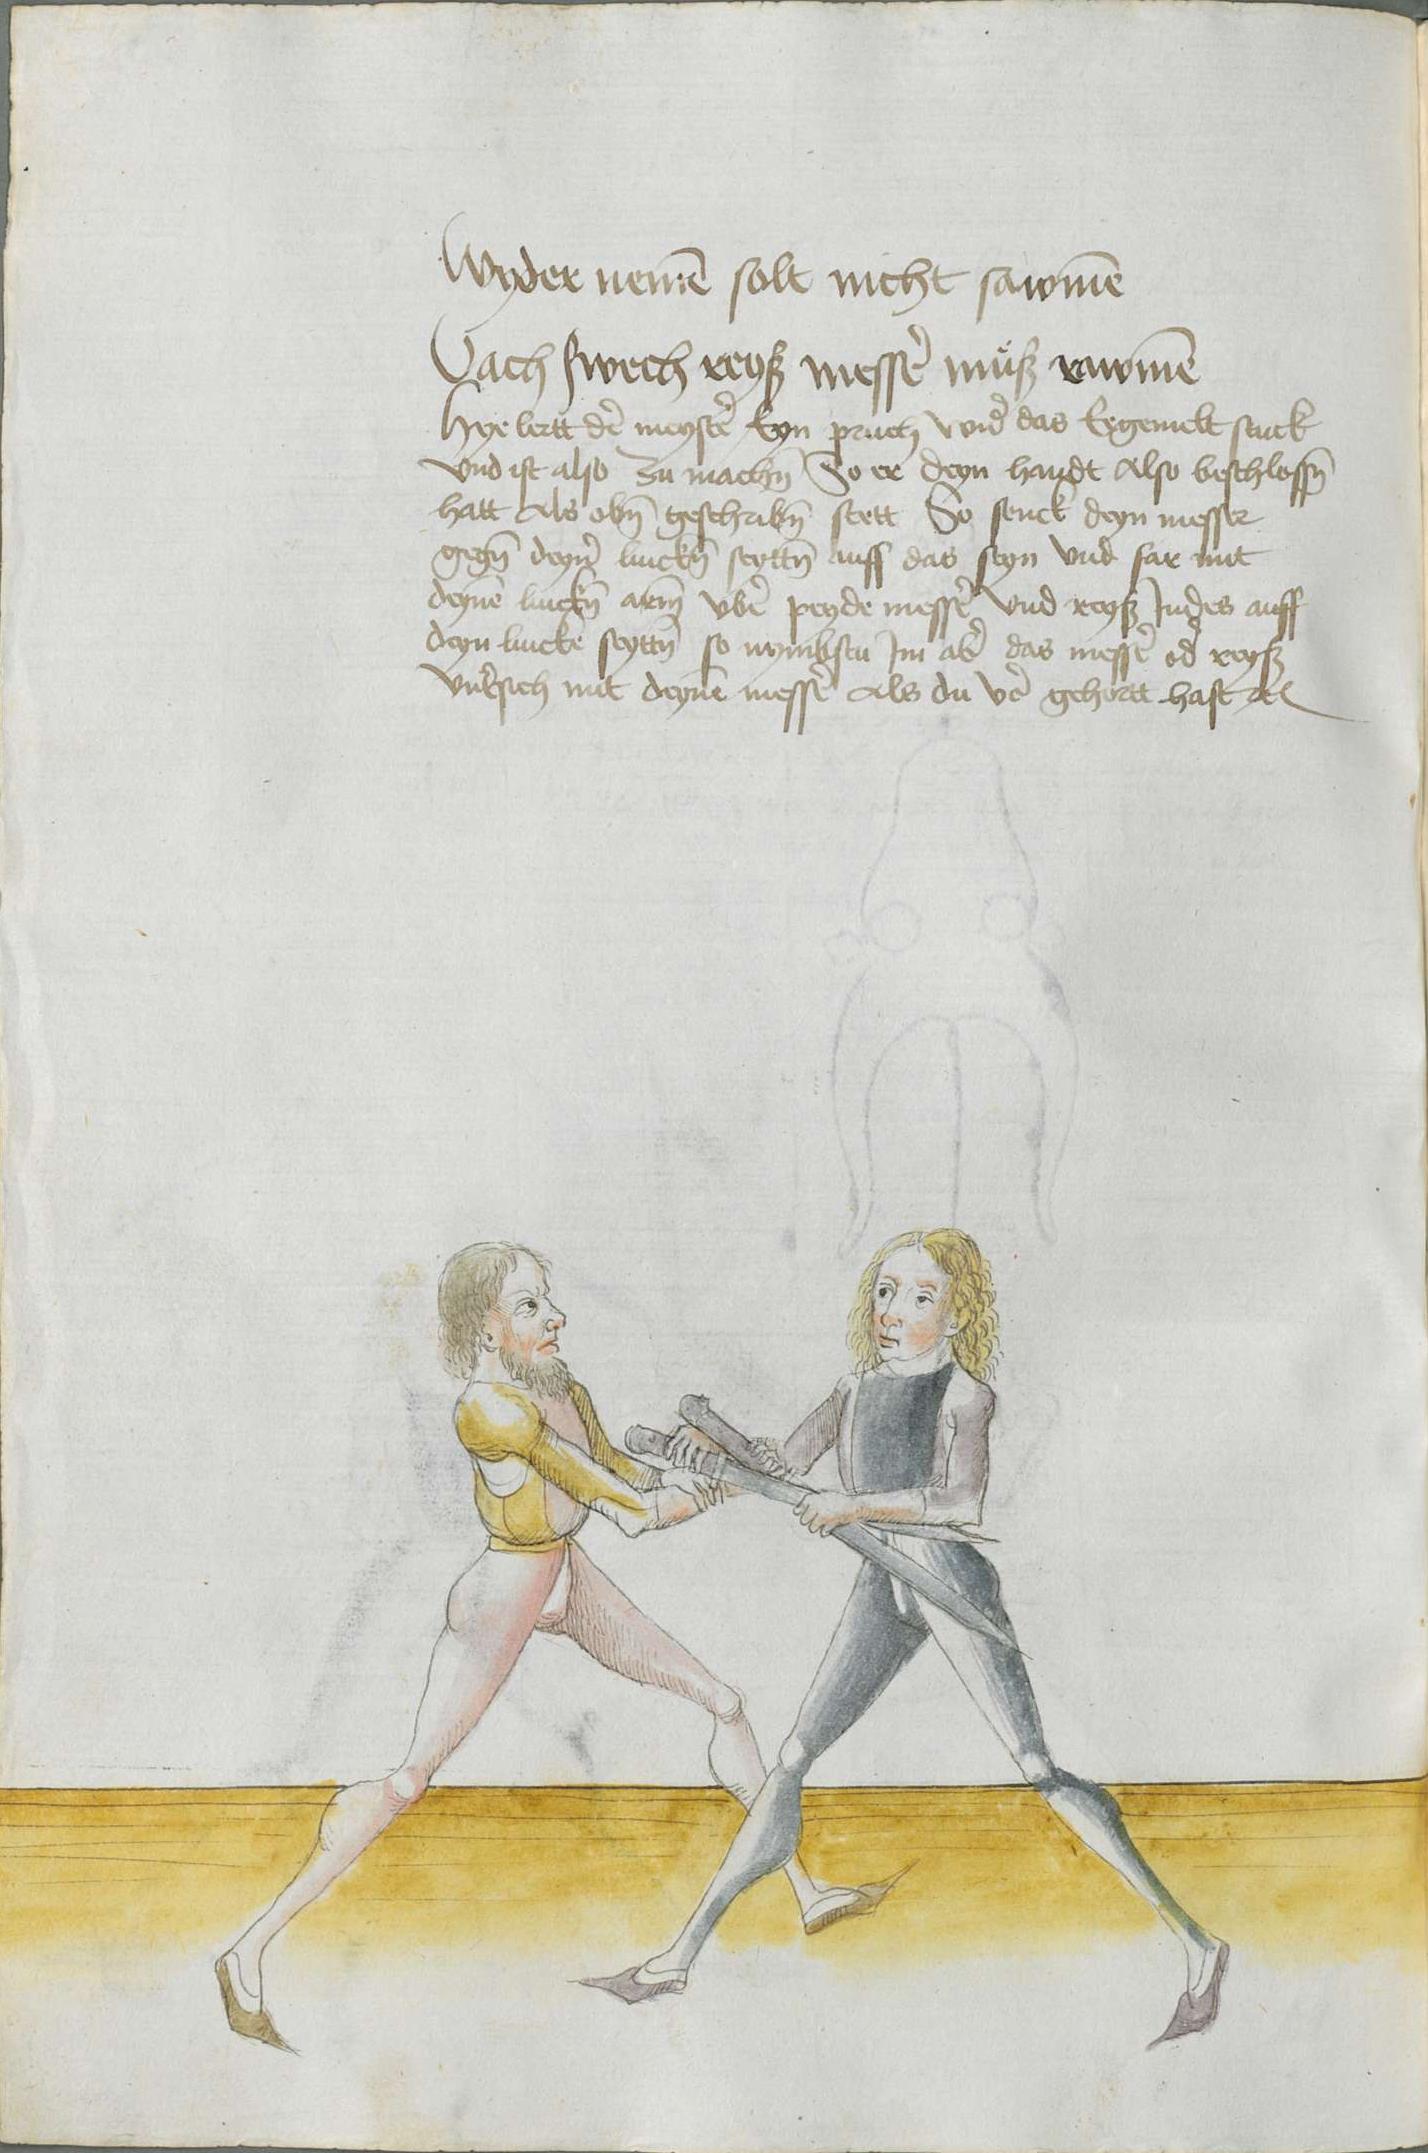 Wyder nemē solt nicht sawmē
Vach swech reyß messē muß rawmē
Hye lertt dē meystē Eyn pruch vnd das Eegemelt stuck
vnd ist also zu machn̄ So er deyn handt Also beschlossn̄
hatt Als obn̄ geschribn̄ stett So senck deyn messer
gegn̄ deyn̄ linckn̄ seyttn̄ auff das seyn vnd far mit
deynē linckn̄ arm̄ vbē peyde messē vnd reyß Indes auff
deyn lincke seyttn̄ so nymbstu Im ab̄ das messē od̄ reyß
vnt̄sich mit deynē messē Als du vē gehortt hast